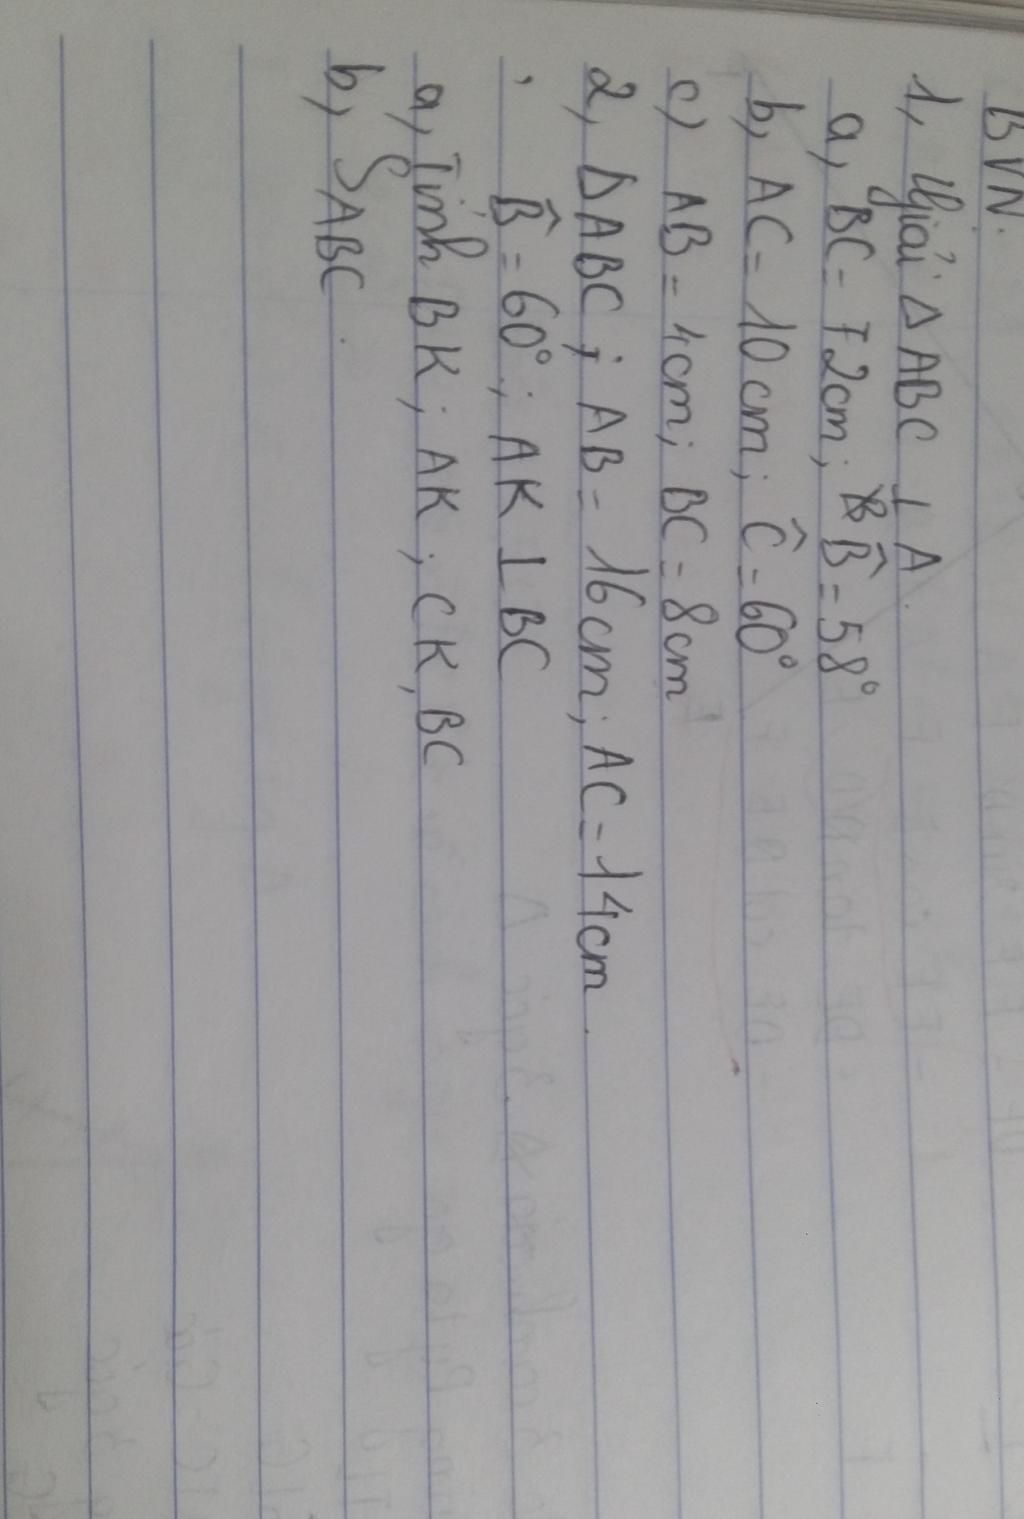 BVN.
1, Giải Δ ABC ⊥ A.
a, BC = 72cm; B̂ = 58°
b, AC = 10cm; Ĉ = 60°
c) AB = 4cm; BC = 8cm
2, Δ ABC; AB = 16cm; AC = 14cm.
B̂ = 60°; AK ⊥ BC
a, Tính BK; AK; CK, BC
b, SABC.